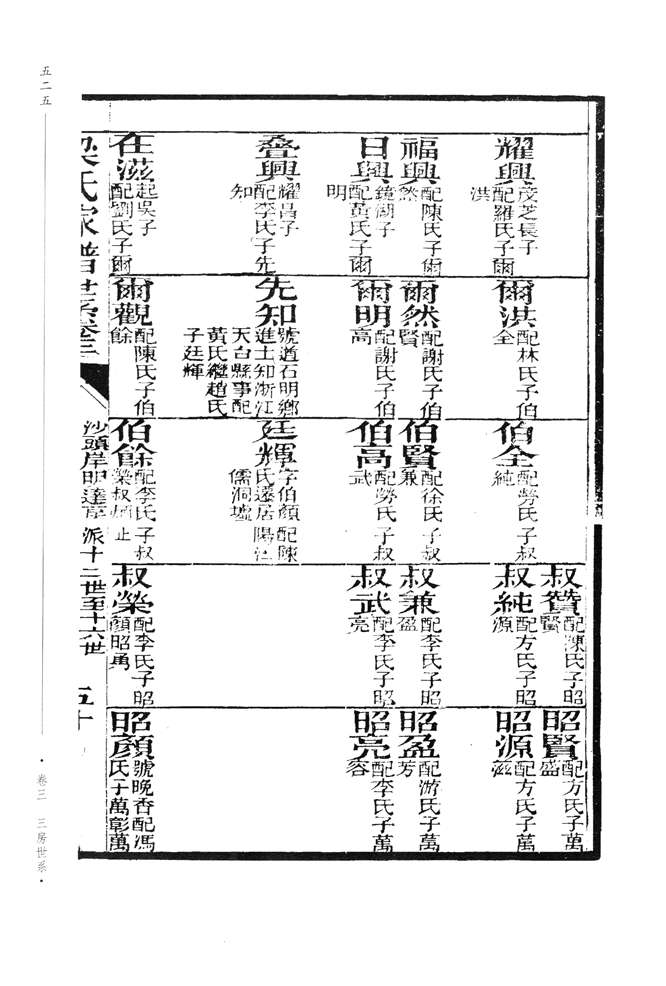 耀興
茂芝長子
配羅氏子爾
洪
福興
配陳氏子爾
然
日興
鏡湖子
配黃氏子爾
明
叠興
耀昌子
配李氏子先
知
在滋
起吳子
配劉氏子爾
爾洪
配林氏子伯
全
爾然
配謝氏子伯
賢
爾明
配謝氏子伯
高
先知
號道石明鄉
進士知浙江
天白縣事配
黃氏繼趙氏
子廷輝
爾觀
配陳氏子伯
餘
伯全
配勞氏子叔
純
伯賢
配徐氏子叔
兼
伯高
配勞氏子叔
武
廷輝
字伯顏配陳
氏遷居陽江
儒洞墟
伯餘
配李氏子叔
榮叔炳止
叔贊
配陳氏子昭
賢
叔純
配方氏子昭
源
叔兼
配李氏子昭
盈
叔武
配李氏子昭
亮
叔榮
配李氏子昭
顏昭勇
昭賢
配方氏子萬
盛
昭源
配方氏子萬
滋
昭盈
配游氏子萬
芳
昭亮
配李氏子萬
容
昭顏
號晚香配馮
氏子萬彰萬
梁氏家譜世系卷三
沙頭岸明達房派十二世至十六世
五十
五二五
·卷三 三房世系·